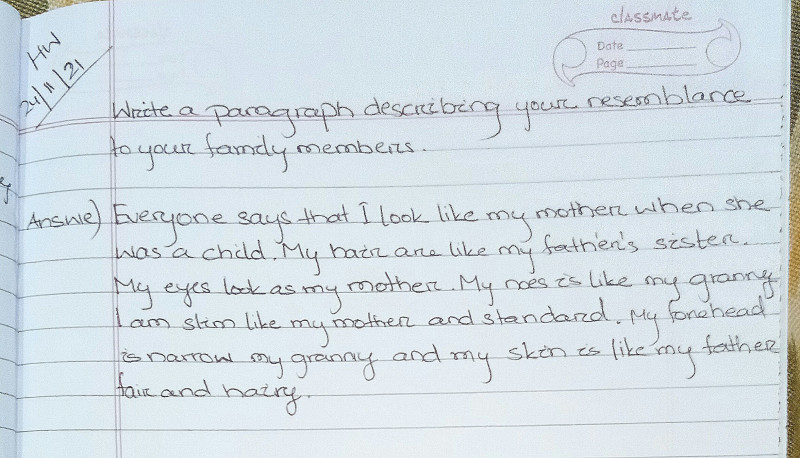 classmate
Date
Page
HW
24/11/21
Write a paragraph describing your resemblance
to your family members.
Answe) Everyone says that I look like my mother when she
was a child. My hair are like my father's sister.
My eyes look as my mother. My noes is like my granny
I am slim like my mother and standard. My forehead
is narrow my granny and my skin is like my father
fair and hairy.